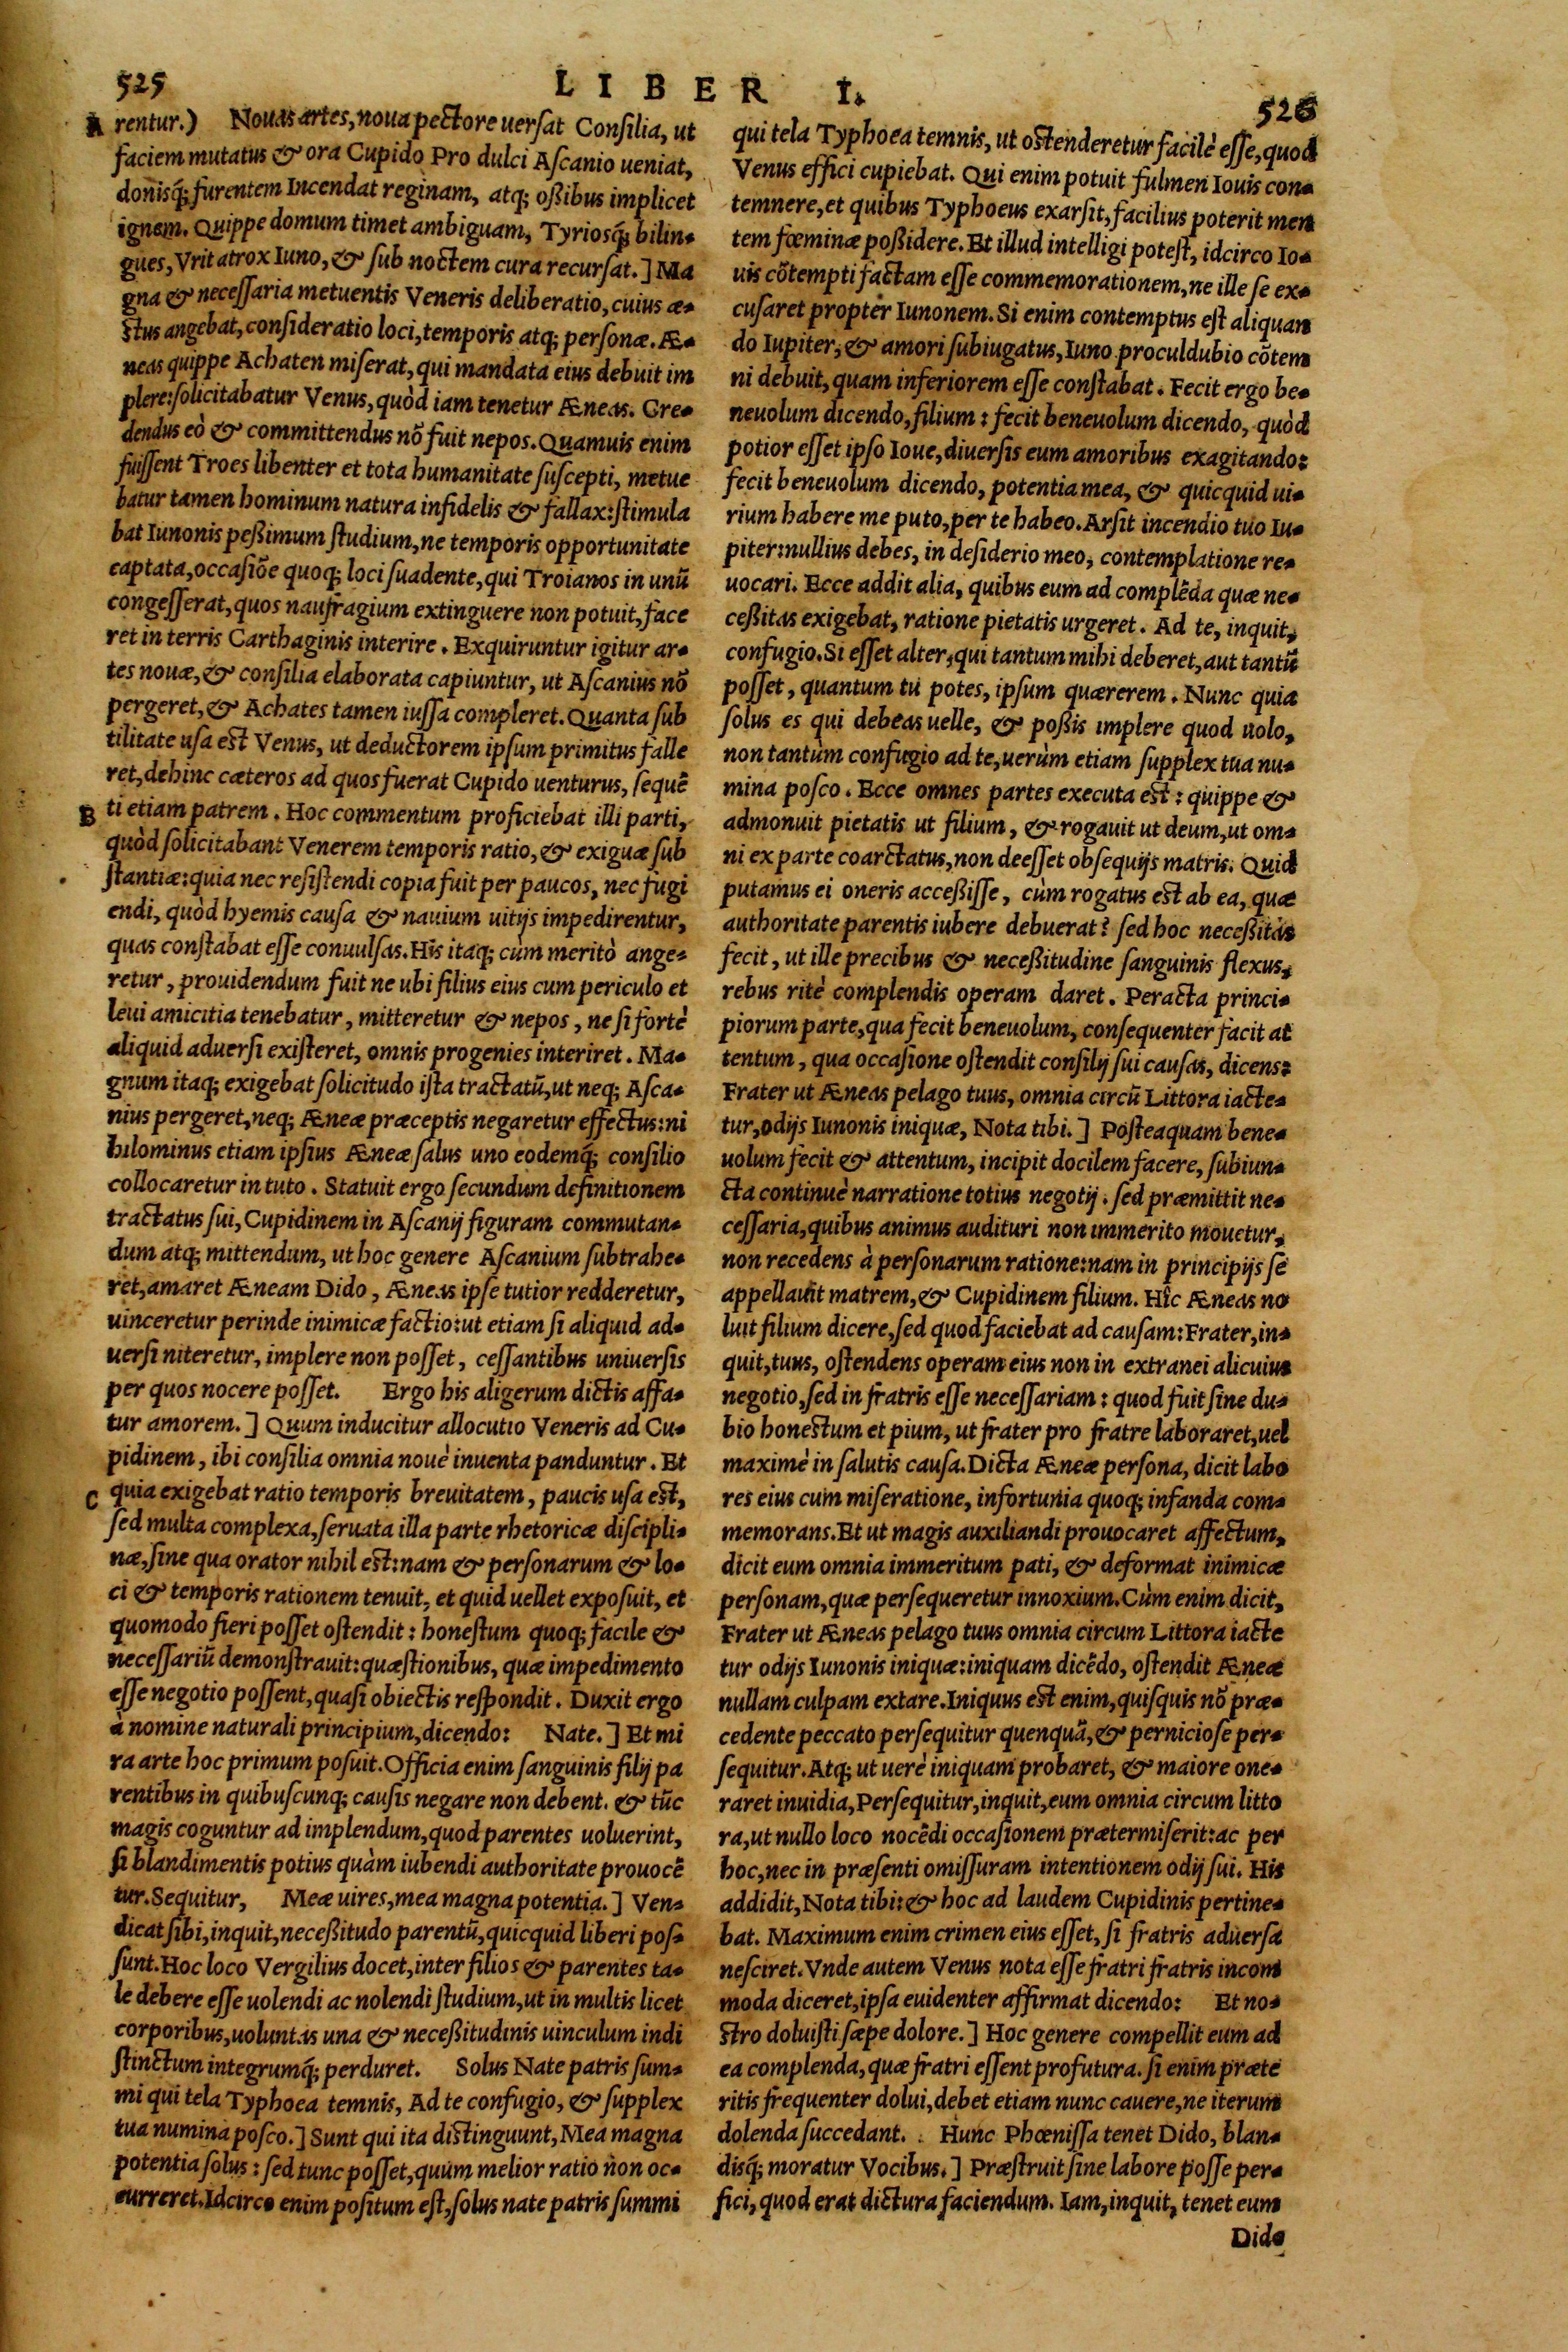 525
LIBER I.
526
A rentur.) Nouas artes, noua pectore uersat Consilia, ut
faciem mutatus & ora Cupido Pro dulci Ascanio ueniat,
donisq́; furentem Incendat reginam, atq; oßibus implicet
ignem. Quippe domum timet ambiguam, Tyriosq́; bilin-
gues, Vrit atrox Iuno, & sub noctem cura recursat.] Ma
gna & necessaria metuentis Veneris deliberatio, cuius æ-
stus angebat, consideratio loci, temporis atq; personæ. Æ-
neas quippe Achaten miserat, qui mandata eius debuit im
plere: solicitabatur Venus, quòd iam tenetur Æneas. Cre-
dendus eò & committendus nõ fuit nepos. Quamuis enim
fuissent Troes libenter et tota humanitate suscepti, metue
batur tamen hominum natura infidelis & fallax: stimula
bat Iunonis peßimum studium, ne temporis opportunitate
captata, occasiõe quoq; loci suadente, qui Troianos in unũ
congesserat, quos naufragium extinguere non potuit, face
ret in terris Carthaginis interire. Exquiruntur igitur ar-
tes nouæ, & consilia elaborata capiuntur, ut Ascanius nõ
pergeret, & Achates tamen iussa compleret. Quanta sub
tilitate usa est Venus, ut deductorem ipsum primitus falle
ret, dehinc cæteros ad quos fuerat Cupido uenturus, sequẽ
B ti etiam patrem. Hoc commentum proficiebat illi parti,
quòd solicitabant Venerem temporis ratio, & exiguæ sub
stantiæ: quia nec resistendi copia fuit per paucos, nec fugi
endi, quòd hyemis causa & nauium uitijs impedirentur,
quas constabat esse conuulsas. His itaq; cùm meritò ange-
retur, prouidendum fuit ne ubi filius eius cum periculo et
leui amicitia tenebatur, mitteretur & nepos, ne si fortè
aliquid aduersi existeret, omnis progenies interiret. Ma-
gnum itaq; exigebat solicitudo ista tractatũ, ut neq; Asca-
nius pergeret, neq; Æneæ præceptis negaretur effectus: ni
hilominus etiam ipsius Æneæ salus uno eodemq́; consilio
collocaretur in tuto. Statuit ergo secundum definitionem
tractatus sui, Cupidinem in Ascanij figuram commutan-
dum atq; mittendum, ut hoc genere Ascanium subtrahe-
ret, amaret Æneam Dido, Æneas ipse tutior redderetur,
uinceretur perinde inimicæ factio: ut etiam si aliquid ad-
uersi niteretur, implere non posset, cessantibus uniuersis
per quos nocere posset. Ergo his aligerum dictis affa-
tur amorem.] Quum inducitur allocutio Veneris ad Cu-
pidinem, ibi consilia omnia nouè inuenta panduntur. Et
C quia exigebat ratio temporis breuitatem, paucis usa est,
sed multa complexa, seruata illa parte rhetoricæ discipli-
næ, sine qua orator nihil est: nam & personarum & lo-
ci & temporis rationem tenuit, et quid uellet exposuit, et
quomodo fieri posset ostendit: honestum quoq; facile &
necessariũ demonstrauit: quæstionibus, quæ impedimento
esse negotio possent, quasi obiectis respondit. Duxit ergo
à nomine naturali principium, dicendo: Nate.] Et mi
ra arte hoc primum posuit. Officia enim sanguinis filij pa
rentibus in quibuscunq; causis negare non debent. & tũc
magis coguntur ad implendum, quod parentes uoluerint,
si blandimentis potius quàm iubendi authoritate prouocẽ
tur. Sequitur, Meæ uires, mea magna potentia.] Ven-
dicat sibi, inquit, neceßitudo parentũ, quicquid liberi pos-
sunt. Hoc loco Vergilius docet, inter filios & parentes ta-
le debere esse uolendi ac nolendi studium, ut in multis licet
corporibus, uoluntas una & neceßitudinis uinculum indi
stinctum integrumq́; perduret. Solus Nate patris sum-
mi qui tela Typhoea temnis, Ad te confugio, & supplex
tua numina posco.] Sunt qui ita distinguunt, Mea magna
potentia solus: sed tunc posset, quùm melior ratio non oc-
curreret. Idcirco enim positum est, solus nate patris summi
qui tela Typhoea temnis, ut ostenderetur facilè esse, quod
Venus effici cupiebat. Qui enim potuit fulmen Iouis con-
temnere, et quibus Typhoeus exarsit, facilius poterit men
tem fœminæ poßidere. Et illud intelligi potest, idcirco Io-
uis cõtempti factam esse commemorationem, ne ille se ex-
cusaret propter Iunonem. Si enim contemptus est aliquan
do Iupiter, & amori subiugatus, Iuno proculdubio cõtem
ni debuit, quam inferiorem esse constabat. Fecit ergo be-
neuolum dicendo, filium: fecit beneuolum dicendo, quòd
potior esset ipso Ioue, diuersis eum amoribus exagitando:
fecit beneuolum dicendo, potentia mea, & quicquid ui-
rium habere me puto, per te habeo. Arsit incendio tuo Iu-
piter: nullius debes, in desiderio meo, contemplatione re-
uocari. Ecce addit alia, quibus eum ad complẽda quæ ne-
ceßitas exigebat, ratione pietatis urgeret. Ad te, inquit,
confugio. Si esset alter, qui tantum mihi deberet, aut tantũ
posset, quantum tu potes, ipsum quærerem. Nunc quia
solus es qui debeas uelle, & poßis implere quod uolo,
non tantùm confugio ad te, uerùm etiam supplex tua nu-
mina posco. Ecce omnes partes executa est: quippe &
admonuit pietatis ut filium, & rogauit ut deum, ut om-
ni ex parte coarctatus, non deesset obsequijs matris. Quid
putamus ei oneris acceßisse, cùm rogatus est ab ea, quæ
authoritate parentis iubere debuerat? sed hoc neceßitas
fecit, ut ille precibus & neceßitudine sanguinis flexus,
rebus ritè complendis operam daret. Peracta princi-
piorum parte, qua fecit beneuolum, consequenter facit at
tentum, qua occasione ostendit consilij sui causas, dicens:
Frater ut Æneas pelago tuus, omnia circũ Littora iacte-
tur, odijs Iunonis iniquæ, Nota tibi.] Posteaquam bene-
uolum fecit & attentum, incipit docilem facere, subiun-
cta continuè narratione totius negotij. sed præmittit ne-
cessaria, quibus animus audituri non immerito mouetur,
non recedens à personarum ratione: nam in principijs se
appellauit matrem, & Cupidinem filium. Hîc Æneas no
luit filium dicere, sed quod faciebat ad causam: Frater, in-
quit, tuus, ostendens operam eius non in extranei alicuius
negotio, sed in fratris esse necessariam: quod fuit sine du-
bio honestum et pium, ut frater pro fratre laboraret, uel
maximè in salutis causa. Dicta Æneæ persona, dicit labo
res eius cum miseratione, infortunia quoq; infanda com-
memorans. Et ut magis auxiliandi prouocaret affectum,
dicit eum omnia immeritum pati, & deformat inimicæ
personam, quæ persequeretur innoxium. Cùm enim dicit,
Frater ut Æneas pelago tuus omnia circum Littora iacte
tur odijs Iunonis iniquæ: iniquam dicẽdo, ostendit Æneæ
nullam culpam extare. Iniquus est enim, quisquis nõ præ-
cedente peccato persequitur quenquã, & perniciose per-
sequitur. Atq; ut uerè iniquam probaret, & maiore one-
raret inuidia, Persequitur, inquit, eum omnia circum litto
ra, ut nullo loco nocẽdi occasionem prætermiserit: ac per
hoc, nec in præsenti omissuram intentionem odij sui. His
addidit, Nota tibi: & hoc ad laudem Cupidinis pertine-
bat. Maximum enim crimen eius esset, si fratris aduersa
nesciret. Vnde autem Venus nota esse fratri fratris incom
moda diceret, ipsa euidenter affirmat dicendo: Et no-
stro doluisti sæpe dolore.] Hoc genere compellit eum ad
ea complenda, quæ fratri essent profutura. si enim præte
ritis frequenter dolui, debet etiam nunc cauere, ne iterum
dolenda succedant. Hunc Phœnissa tenet Dido, blan-
disq́; moratur Vocibus.] Præstruit sine labore posse per-
fici, quod erat dictura faciendum. Iam, inquit, tenet eum
Dido